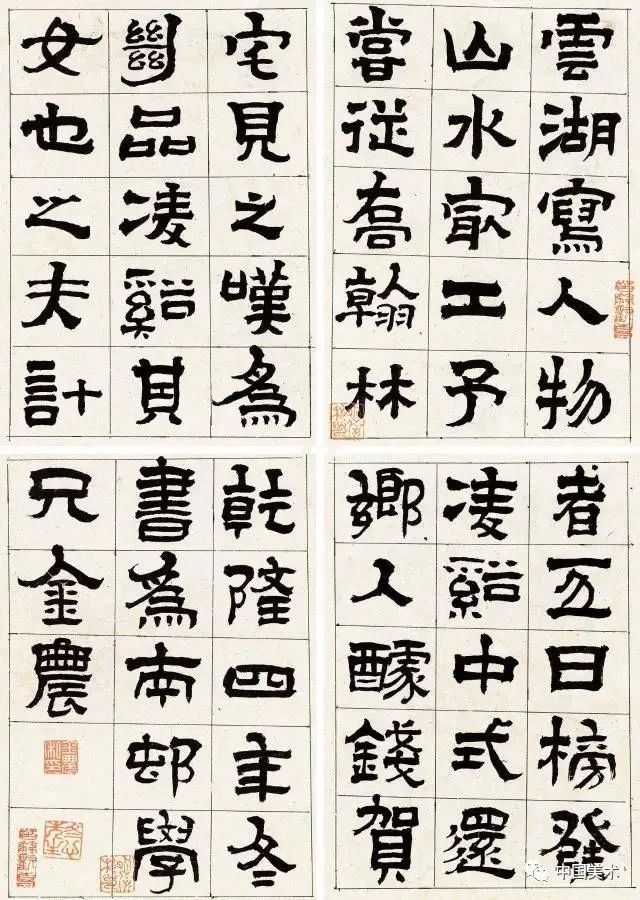 雲湖寫人物
山水㝡工予
嘗從喬翰林
宅見之嘆為
品凌谿其
女也之夫計
者五日榜發
凌谿中式還
鄉人醵錢賀
乾隆四年冬
書為南邨學
兄金農
中国美术